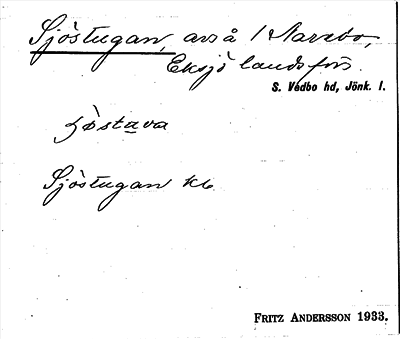 Sjöstugan, avs å 1 Narvebo,
Eksjö landsförs.
S. Vedbo hd, Jönk. l.
ʃöstava
Sjöstugan kb
FRITZ ANDERSSON 1933.